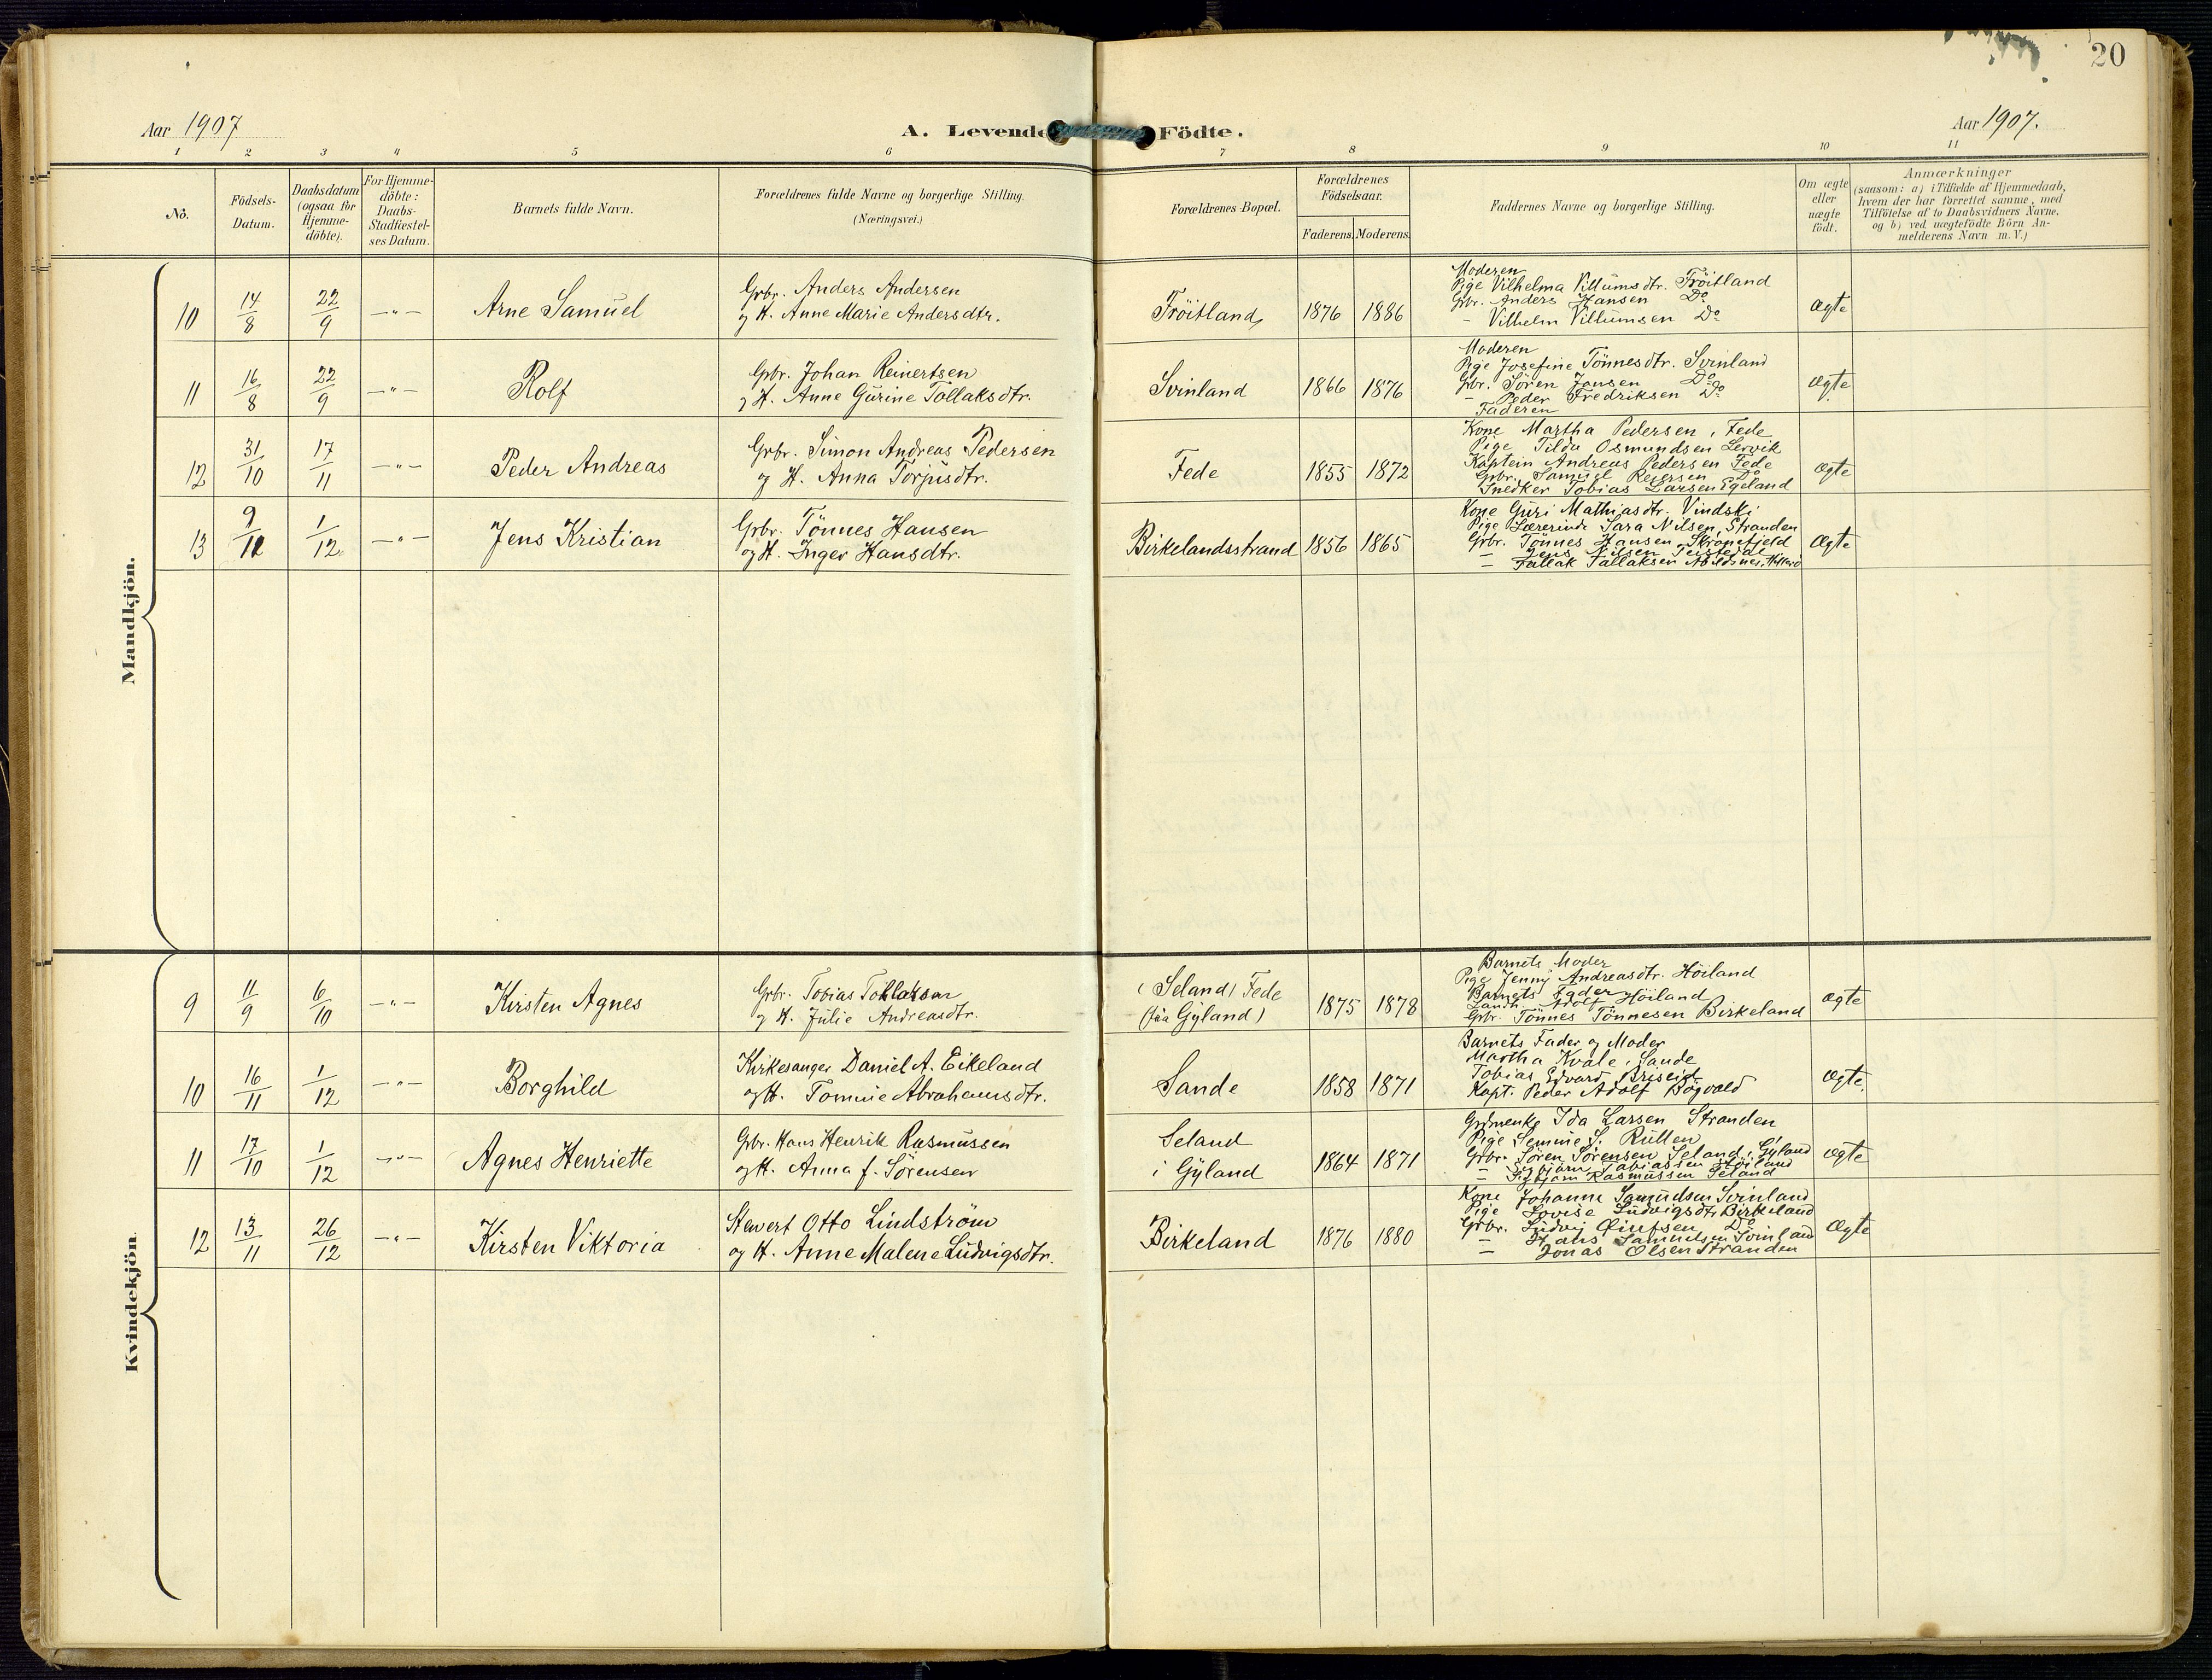 20
Aar 1907
A. Levende Födte.
Aar 1907.
1 2 3 4 5 6 7 8 9 10 11
No.
Födsels-Datum.
Daabsdatum (ogsaa for Hjemme-döbte).
For Hjemme-döbte: Daabs-Stadfæstel-ses Datum.
Barnets fulde Navn.
Forældrenes fulde Navne og borgerlige Stilling.
(Næringsvei.)
Forældrenes Bopæl.
Forældrenes Födselsaar.
Faderens. Moderens.
Faddernes Navne og borgerlige Stilling.
Om ægte eller uægte födt.
Anmærkninger
(saasom: a) i Tilfælde af Hjemmedaab,
hvem der har forrettet samme, med
Tilföielse af to Daabsvidners Navne,
og b) ved uægtefödte Börn An-
melderens Navn m. V.)
Mandkjön.
10 14/8 22/9 —"— Arne Samuel
Gbr. Anders Andersen
og H. Anne Marie Andersdtr.
Fröitland 1876 1886
Moderen
Pige Vilhelma Villumsdtr. Fröitland
Gbr. Anders Hansen Do
— Vilhelm Villumsen Do
Ægte
11 16/8 22/9 —"— Rolf
Gbr. Johan Reinertsen
og H. Anne Gurine Tollaksdtr.
Svinland 1866 1876
Moderen
Pige Josefine Tönnesdtr. Svinland
Gbr. Sören Jansen Do
— Peder Fredriksen Do
Faderen
Ægte
12 31/10 17/11 —"— Peder Andreas
Grbr. Simon Andreas Pedersen
og H. Anna Torjusdtr.
Fede 1855 1872
Kone Martha Pedersen, Fede
Pige Tilda Osmundsen Lervik
Kaptein Andreas Pedersen Fede
Grbr. Samuel Do
Snedker Tobias Larsen Egeland
Ægte
13 9/11 1/12 —"— Jens Kristian
Grbr. Tönnes Hansen
og H. Inger Hansdtr.
Birkelandsstrand 1856 1865
Kone Guri Mathiasdtr. Vindski
Pige Lærerinde Sara Nilsen, Stranden
Grbr. Tönnes Hansen
— Jens Nilsen
— Tallak Tallaksen Abildsnes, Hitterö
Ægte
Kvindekjön.
9 11/9 6/10 —"— Kirsten Agnes
Grbr. Tobias Tollaksen
og H. Julie Andreasdtr.
(Seland) Fede
(fra Gyland)
1875 1878
Barnets Moder
Pige Jenny Andreasdtr. Höiland
Barnets Fader
Adolf Höiland
Gbr. Tönnes Tönnesen Birkeland
Ægte
10 16/11 1/12 —"— Borghild
Kirkesanger Daniel A. Eikeland
og H. Tomine Abrahamsdtr.
Sande 1858 1871
Barnets Fader og Moder
Martha Kvale, Sande
Tobias Edvard Briseid
Kapt. Peder Adolf Bögvald
Ægte.
11 17/10 1/12 —"— Agnes Henriette
Gbr. Hans Henrik Rasmussen
og H. Anna f. Sörensen
Seland
i Gyland
1864 1871
Ida Larsen Stranden
Pige Semine S. Rullen
Grbr. Sören Sörensen Seland i Gyland
— Sigbjörn Tobiassen Höiland
— Sigbjörn Rasmussen Seland
Ægte
12 13/11 26/12 —"— Kirsten Viktoria
Stewert Otto Lindström
og H. Anne Malene Ludvigsdtr.
Birkeland 1876 1880
Kone Johanne Samuelsen Svinland
Pige Lovise Ludvigsdtr. Birkeland
Grbr. Ludvig Do
— Hans Samuelsen Svinland
— Jonas Olsen Stranden
Ægte